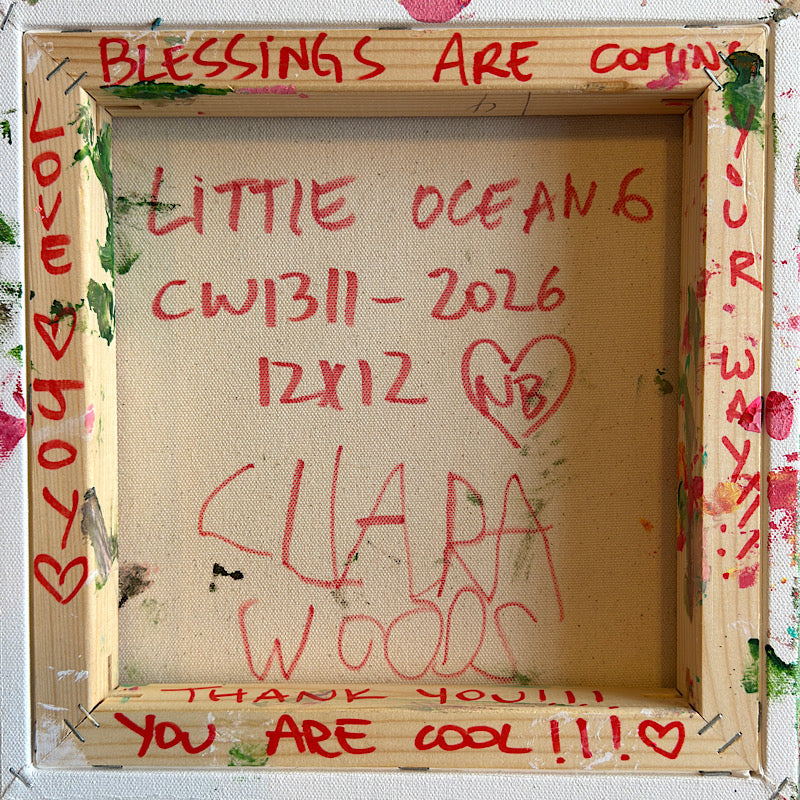 BLESSINGS ARE COMING
YOUR WAY!!!
LOVE ♡ YOU ♡
LITTLE OCEAN 6
CW1311 - 2026
12X12 NB
CLARA
WOODS
THANK YOU!!!
YOU ARE COOL!!!♡